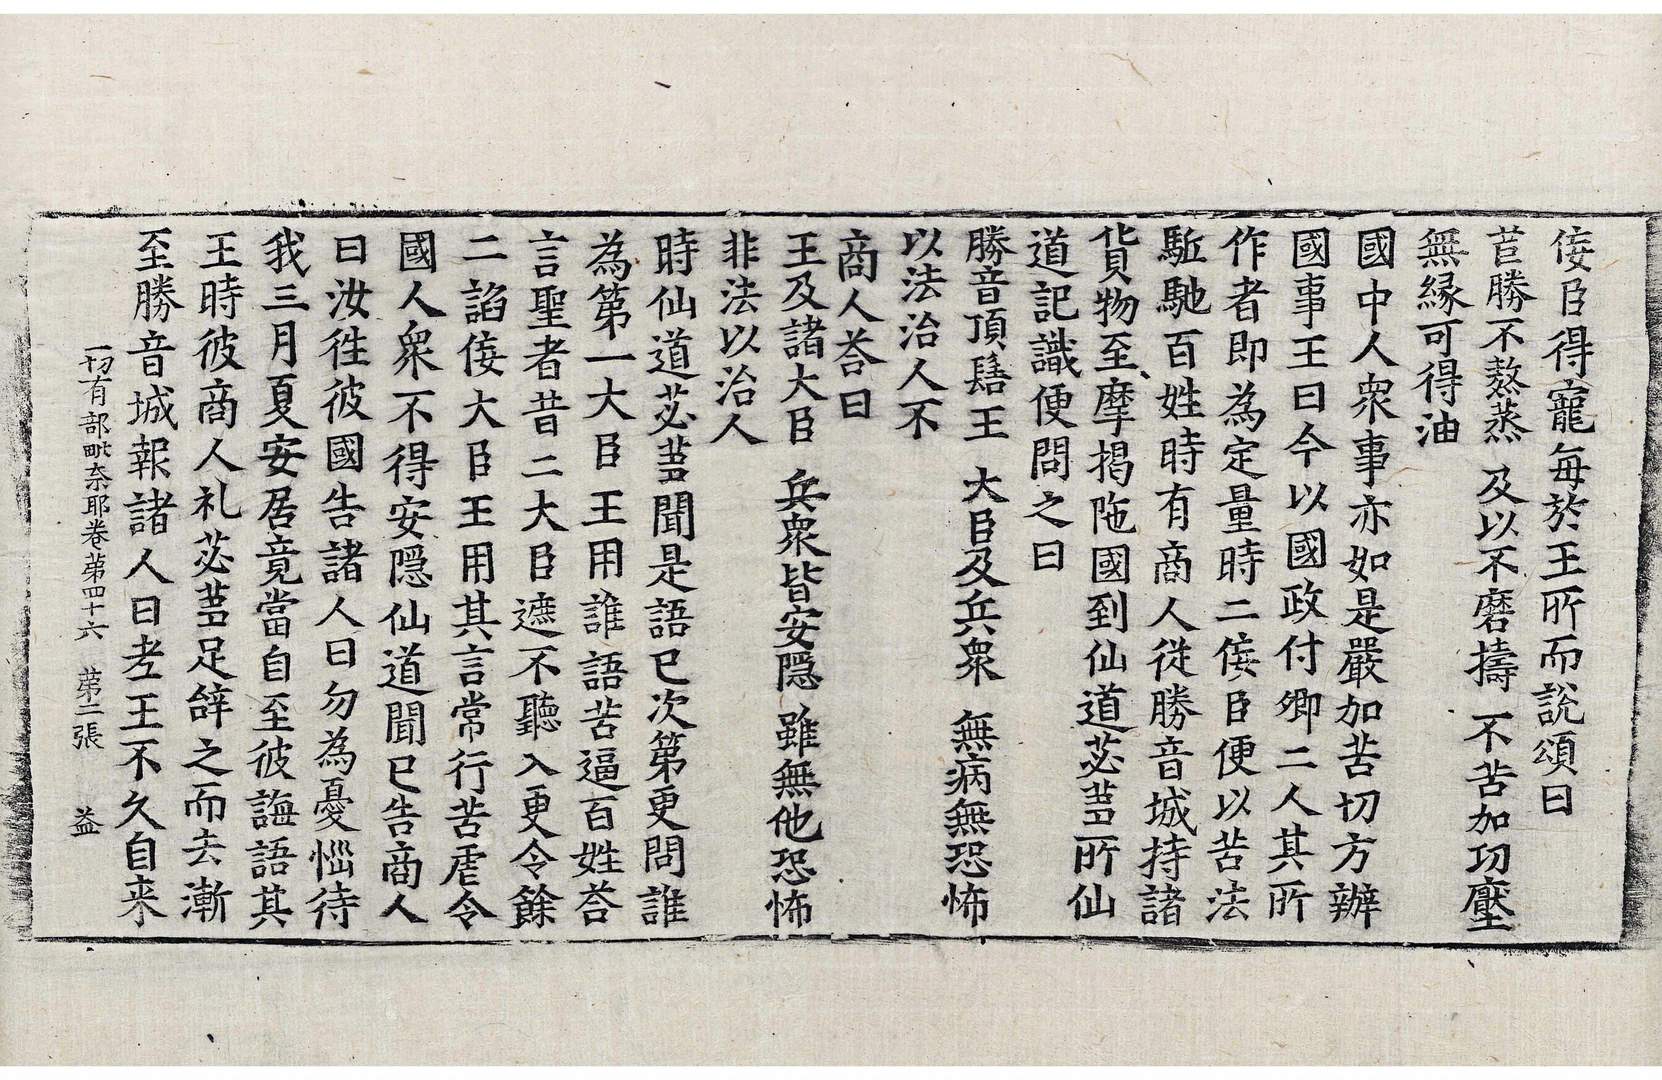 倿臣得寵每於王所而說頌曰
苣勝不熬蒸　及以不磨擣　不苦加功壓
無縁可得油
國中人衆事亦如是嚴加苦切方辦
國事王曰今以國政付卿二人其所
作者即為定量時二倿臣便以苦法
駈馳百姓時有商人從勝音城持諸
貨物至摩揭陁國到仙道苾蒭所仙
道記識便問之曰
勝音頂髻王　大臣及兵衆　無病無恐怖
以法治人不
商人荅曰
王及諸大臣　兵衆皆安隠　雖無他恐怖
非法以治人
時仙道苾蒭聞是語已次第更問誰
為第一大臣王用誰語苦逼百姓荅
言聖者昔二大臣遮不聽入更令餘
二諂倿大臣王用其言常行苦虐令
國人衆不得安隠仙道聞已告商人
曰汝徃彼國告諸人曰勿為憂惱待
我三月夏安居竟當自至彼誨語其
王時彼商人礼苾蒭足辝之而去漸
至勝音城報諸人曰老王不久自来
一切有部毗奈耶卷苐四十六　苐二張　益